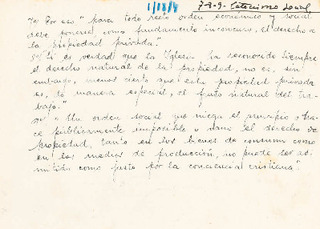 1/8/84 7-8-9. Catecismo Social
"a) Por eso" para todo recto orden económico y social
debe ponerse como fundamento inconcuso el derecho a
la propiedad privada".
"Si es verdad que la Iglesia ha reconocido siempre
el derecho natural de la propiedad, no es, sin
embargo, menos cierto que esta propiedad privada
es, de manera especial, el fruto natural del tra-
bajo."
Un orden social que niega el principio o ha-
ce prácticamente imposible o vano el derecho de
propiedad, tanto en los bienes de consumo como
en los medios de producción, no puede ser ad-
mitido como justo por la conciencia cristiana".